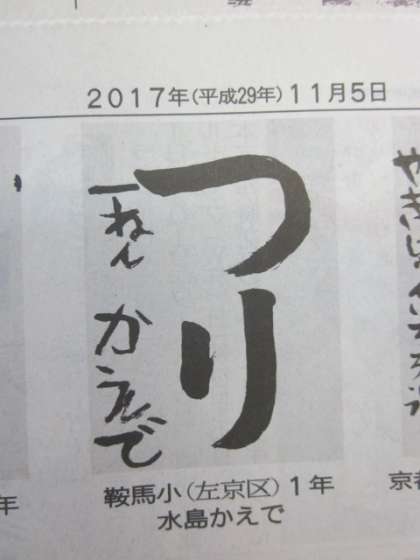 2017年(平成29年)11月5日
つり
一ねん かえで
鞍馬小(左京区)1年
水島かえで
年
京都